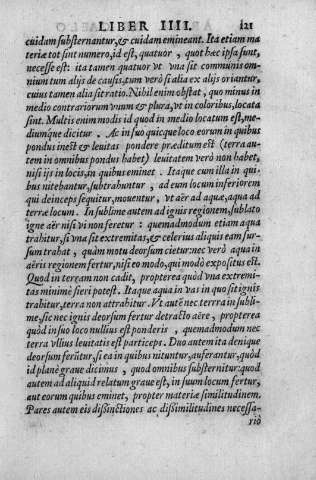 LIBER IIII. 121
cuidam substernantur, & cuidam emineant. Ita etiam ma
teriæ tot sint numero, id est, quatuor, quot hæc ipsa sunt,
necesse est: ita tamen quatuor vt vna sit communis om-
nium tum alijs de causis, tum verò si alia ex alijs oriantur,
cuius tamen alia sit ratio. Nihil enim obstat, quo minus in
medio contrariorum vnum & plura, vt in coloribus, locata
sint. Multis enim modis id quod in medio locatum est, me-
diumque dicitur. Ac in suo quicque loco eorum in quibus
pondus inest & leuitas pondere præditum est (terra au-
tem in omnibus pondus habet) leuitatem verò non habet,
nisi ijs in locis, in quibus eminet. Itaque cum illa in qui-
bus nitebantur, subtrahuntur, ad eum locum inferiorem
qui deinceps sequitur, mouentur, vt aër ad aquæ, aqua ad
terræ locum. In sublime autem ad ignis regionem, sublato
igne aër nisi vi non feretur: quemadmodum etiam aqua
trahitur, si vna sit extremitas, & celerius aliquis eam sur-
sum trahat, quàm motu deorsum cietur: nec verò aqua in
aëris regionem fertur, nisi eo modo, qui modò expositus est.
Quod in terram non cadit, propterea quòd vna extremi-
tas minimè fieri potest. Itaque aqua in vas in quo sit ignis
trahitur, terra non attrahitur. Vt autē nec terra in subli-
me, sic nec ignis deorsum fertur detracto aëre, propterea
quòd in suo loco nullius est ponderis, quemadmodum nec
terra vllius leuitatis est particeps. Duo autem ita denique
deorsum ferūtur, si ea in quibus nituntur, auferantur, quòd
id planè graue dicimus, quod omnibus substernitur: quod
autem ad aliquid relatum graue est, in suum locum fertur,
aut eorum quibus eminet, propter materiæ similitudinem.
Pares autem eis distinctiones ac dissimilitudines necessa-
riò